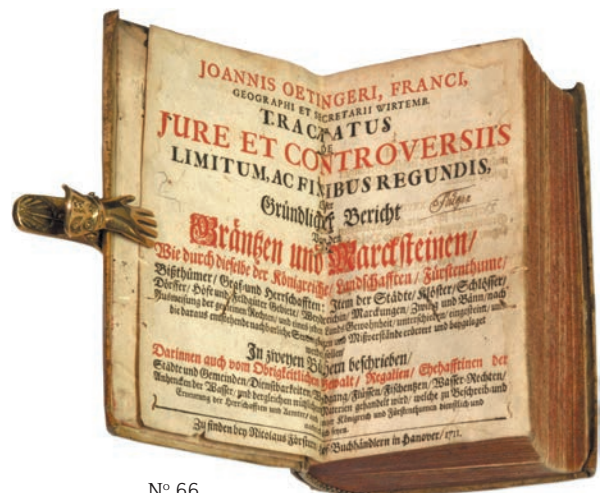 JOANNIS OETINGERI, FRANCI,
GEOGRAPHI ET SECRETARII WIRTEMB.
TRACTATUS
DE
JURE ET CONTROVERSIIS
LIMITUM, AC FINIBUS REGUNDIS,
Oder
Gründlicher Bericht
Von den
Gräntzen und Marcksteinen/
Wie durch dieselbe der Königreiche/ Landschafften/ Fürstenthume/
Bißthümer/ Graf und Herrschafften: Item der Städte/ Klöster/ Schlösser/
Dörffer/ Höfe und Feldgüter Gebiete/ Marckungen/ Zwing und Bänn/ nach
Außweisung der gemeinen Rechten/ und eines jeden Lands Gewohnheit/ unterschieden/ eingesteint/
die daraus entstehende nachbarliche und Mißverstände erörtert und beygelegt
werden sollen
In zweyen Büchern beschrieben/
Darinnen auch vom Obrigkeitlichen Gewalt/ Regalien/ Ehehafftinen der
Städte und Gemeinden/ Dienstbarkeiten/ Flüssen/ Fischentzen/ Wasser-Rechten/
Anhencken der Wasser/ und dergleichen Materien gehandelt wird/ welche zu Beschreib und
Erneuerung der Herrschafften und Aemter/ Königreich und Fürstenthümen dienstlich und
seyen.
Zu finden bey Nicolaus Förstern Buchhändlern in Hanover/ 1711.
Nº 66